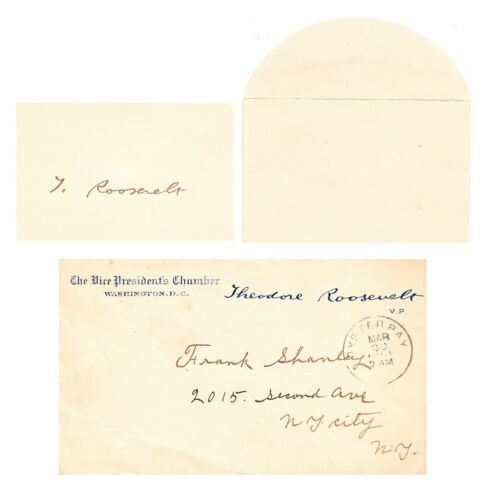 T. Roosevelt
The Vice President's Chamber
WASHINGTON, D.C.
Theodore Roosevelt
V.P.
OYSTER BAY
MAR
AM
Frank Shanley
2015. Second Ave
NY city
N.Y.